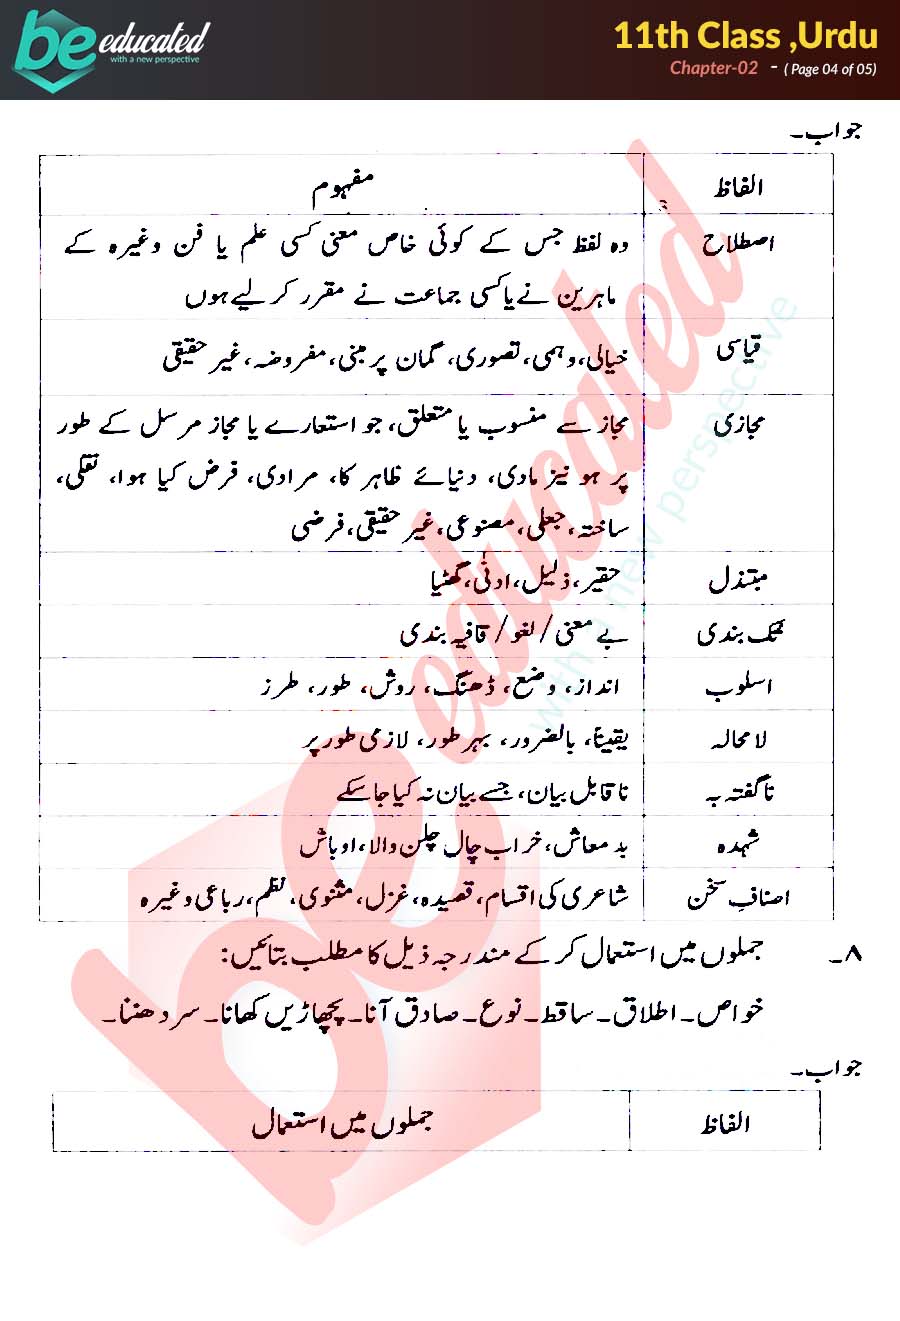 be educated
with a new perspective
11th Class ,Urdu
Chapter-02 - ( Page 04 of 05)
جواب۔
الفاظ مفہوم
اصطلاح وہ لفظ جس کے کوئی خاص معنی کسی علم یا فن وغیرہ کے
ماہرین نے یا کسی جماعت نے مقرر کر لیے ہوں
قیاسی خیالی، وہمی، تصوری، گمان پر مبنی، مفروضہ، غیر حقیقی
مجازی مجاز سے منسوب یا متعلق، جو استعارے یا مجاز مرسل کے طور
پر ہو نیز مادی، دنیائے ظاہر کا، مرادی، فرض کیا ہوا، نقلی،
ساختہ، جعلی، مصنوعی، غیر حقیقی، فرضی
مبتذل حقیر، ذلیل، ادنیٰ، گھٹیا
تک بندی بے معنی / لغو / قافیہ بندی
اسلوب انداز، وضع، ڈھنگ، روش، طور، طرز
لامحالہ یقیناً، بالضرور، بہر طور، لازمی طور پر
ناگفتہ بہ ناقابل بیان، جسے بیان نہ کیا جا سکے
شہدہ بدمعاش، خراب چال چلن والا، اوباش
اصنافِ سخن شاعری کی اقسام، قصیدہ، غزل، مثنوی، نظم، رباعی وغیرہ
۸۔ جملوں میں استعمال کر کے مندرجہ ذیل کا مطلب بتائیں:
خواص۔ اطلاق۔ ساقط۔ نوع۔ صادق آنا۔ پچھاڑیں کھانا۔ سر دھننا۔
جواب۔
الفاظ جملوں میں استعمال
be educated
with a new perspective